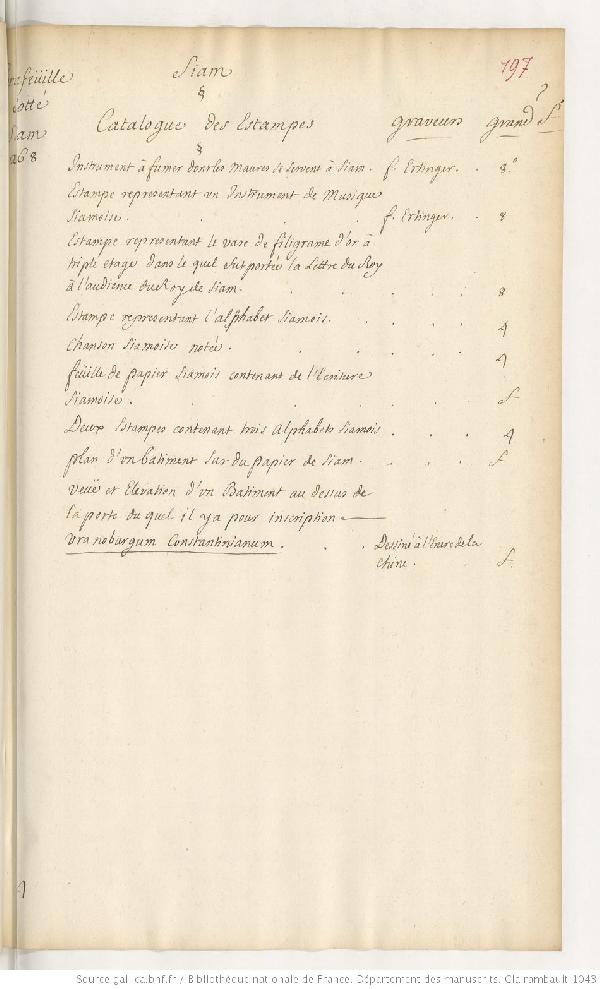 Siam
197
feüille
cotté
Siam
268
Catalogue des Estampes
graveurs
grand f.
Instrument à fumer dont les Maures se servent à Siam. f. Ertinger. 8.°
Estampe representant un Instrument de Musique
Siamoise. f. Ertinger. 8
Estampe representant le vase de filigrame d'or à
triple etage dans le quel fut portée la Lettre du Roy
à l'audience du Roy de Siam. 8
Estampe representant l'alphabet Siamois. 4
Chanson Siamoise notée. 4
feüille de papier Siamois contenant de l'Ecriture
Siamoise. f.
Deux Estampes contenant trois Alphabets Siamois. 4
plan d'un batiment sur du papier de Siam. f.
veüe et Elevation d'un Batiment au dessus de
la porte du quel il y a pour inscription
Uranoburgum Constantinianum. Dessiné à l'Encre de la
Chine. f.
4
Source gallica.bnf.fr / Bibliothèque nationale de France. Département des manuscrits. Clairambault 1043